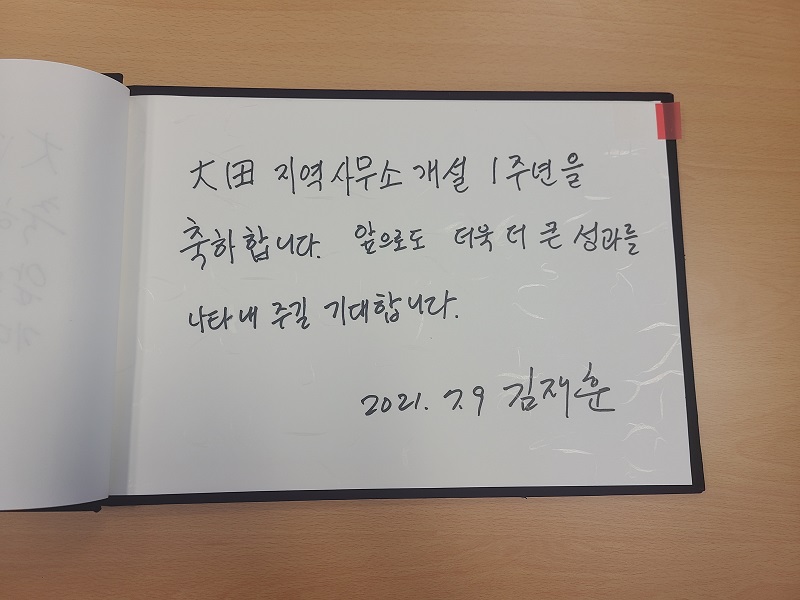 大田 지역사무소 개설 1주년을
축하합니다. 앞으로도 더욱 더 큰 성과를
나타내 주길 기대합니다.
2021. 7.9 김재훈